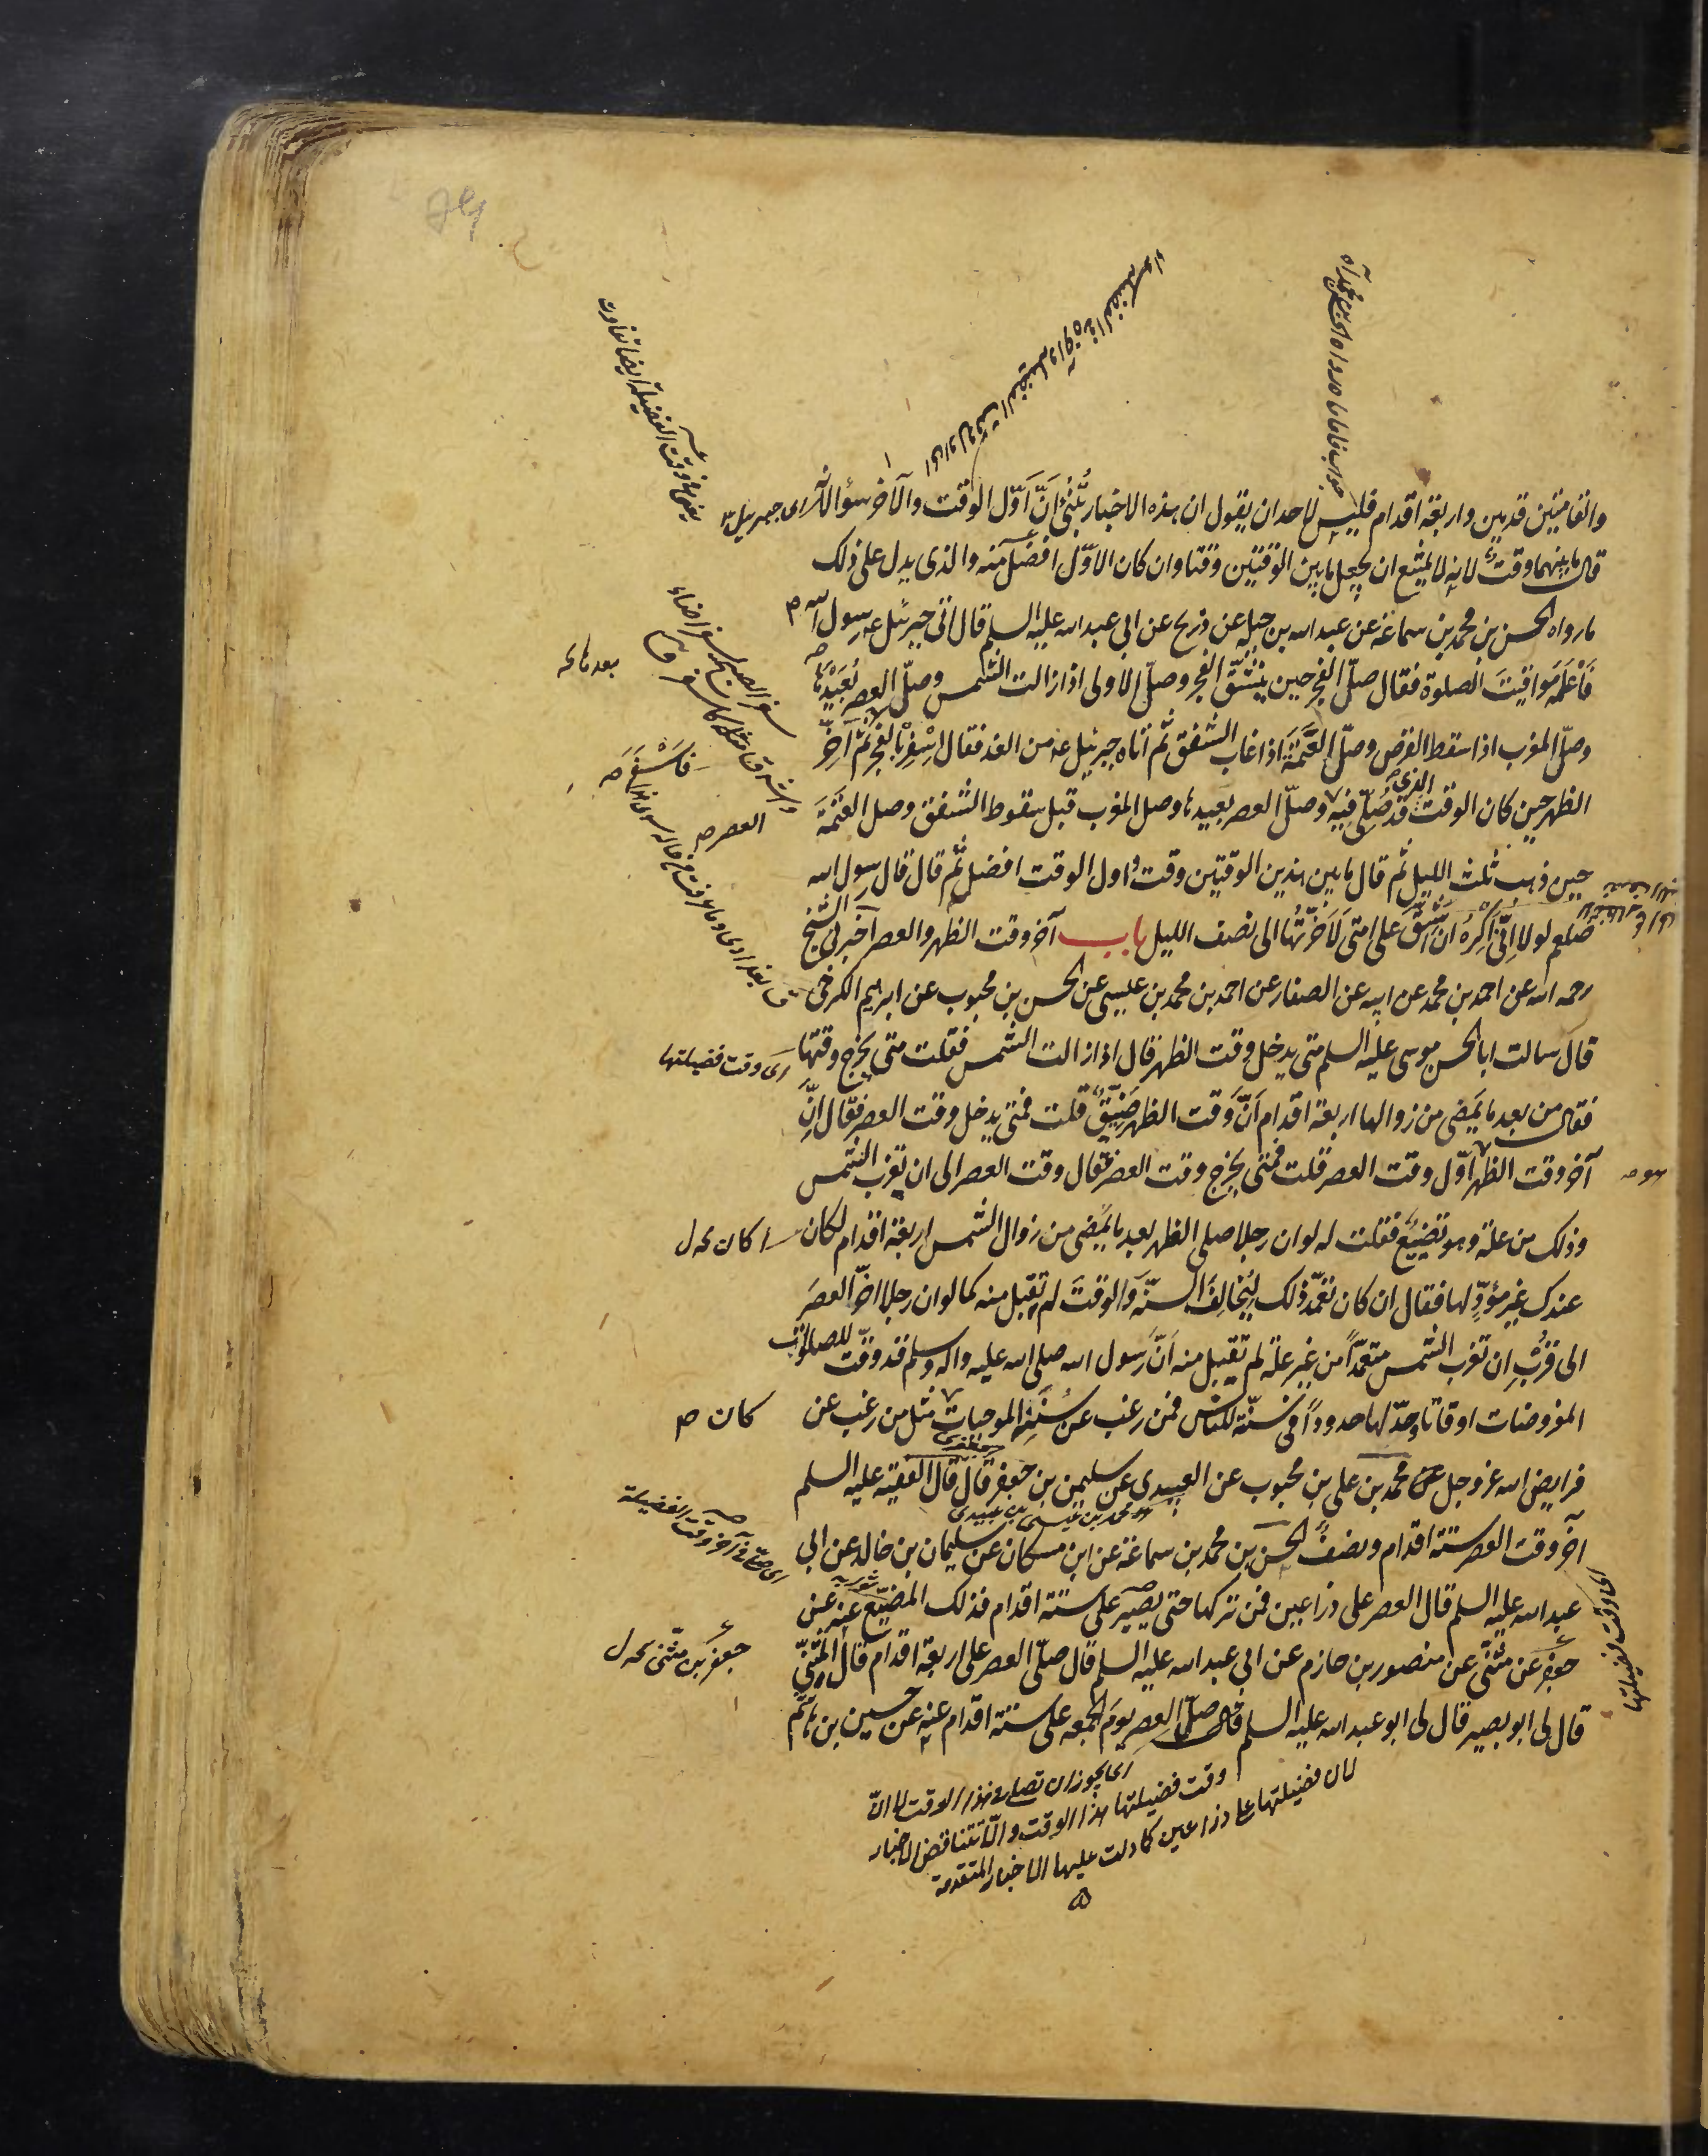 والقامتين قدمين واربعة اقدام فليس لاحد ان يقول ان هذه الاخبار تُنْبِئُ اَنّ اَوّل الوقت والآخر سواء لانه اى جبرئيل
قال ما بينهما وقتٌ لانه لا يمتنع ان يجعل ما بين الوقتين وقتا وان كان الاوّل افضل منه والذى يدل على ذلك
ما رواه الحسن بن محمد بن سماعة عن عبد الله بن جبله عن ذريح عن ابى عبد الله عليه السلم قال اتى جبرئيل عه رسول الله ص
فَاَعْلَمَهُ مَوَاقِيتَ الصلوة فقال صلّ الفجر حين ينشقّ الفجر وصلّ الاولى اذا زالت الشمس وصلّ العصر بُعَيْدَهَا
وصلّ المغرب اذا سقط القرص وصلّ العَتَمَةَ اذا غاب الشفق ثم اتاه جبرئيل عه من الغد فقال اَسْفِرْ بالفجر ثم اَخّرَ
الظهر حين كان الوقت الذى صلّى فيه وصلّ العصر بعيدها وصل المغرب قبل سقوط الشفق وصل العَتَمَةَ
حين ذهب ثلث الليل ثم قال ما بين هذين الوقتين وقت واول الوقت افضل ثم قال قال رسول الله
صلعم لولا اِنّى اَكْرَهُ ان اَشُقّ على امتى لَاَخّرْتُهَا الى نصف الليل باب آخر وقت الظهر والعصر اخبرنى الشيخ
رحمه الله عن احمد بن محمد عن ابيه عن الصفار عن احمد بن محمد بن عيسى عن الحسن بن محبوب عن ابرهيم الكرخى
قال سالت ابا الحسن موسى عليه السلم متى يدخل وقت الظهر قال اذا زالت الشمس فقلت متى يخرج وقتها
اى وقت فضيلتها
فقال من بعد ما يَمضى من زوالها اربعة اقدام اَنّ وَقت الظهر ضَيّقٌ قلت فمتى يدخل وقت العصر فقال اِنّ
آخر وقت الظهر اوّل وقت العصر قلت فمتى يخرج وقت العصر فقال وقت العصر الى ان تغرب الشمس
وذلك من علة وهو تضييع فقلت له لو ان رجلا صلى الظهر بعد ما يمضى من زوال الشمس اربعة اقدام لكان
عندك غير مؤدّ لها فقال ان كان تعمّد ذلك لِيُخَالِفَ السنّة وَالوقتَ لم تقبل منه كما لو ان رجلا اخّر العصرَ
الى قُرْبِ ان تغرب الشمس متعمّداً من غير علة لم تقبل منه اَنّ رَسول الله صلى الله عليه واله وسلم قد وقّت للصلوات
المفروضات اوقاتا وحدّ لها حدوداً فى سنّته للناس فمن رغب عن سُنّةٍ من سُنَنِهِ الموجبات مثل من رغب عن
كان ص
فرايض الله عز وجل محمد بن على بن محبوب عن العبيدى عن سليمن بن جعفر قال قال الفقيه عليه السلم
هو محمد بن عيسى بن عبيدى
آخر وقت العصر ستة اقدام ونصفٌ الحسن بن محمد بن سماعة عن ابن مسكان عن سليمان بن خالد عن ابى
عبد الله عليه السلم قال العصر على ذراعين فمن تركها حتى يصير على ستة اقدام فذلك المضيّع عنه عن
جعفر عن مثنّى عن منصور بن حازم عن ابى عبد الله عليه السلم قال صلّ العصر على اربعة اقدام قال المثنّى
قال لى ابو بصير قال لى ابو عبد الله عليه السلم صلّ العصر يوم الجمعه على ستة اقدام عنه عن حسين بن هاشم
اى يجوز ان تصلى فى هذا الوقت لا انّ
وقت فضيلتها هذا الوقت والّا تتناقض الاخبار
لان فضيلتها على ذراعين كما دلت عليها الاخبار المتقدمة
العصر ص
اى وقت فضيلتها